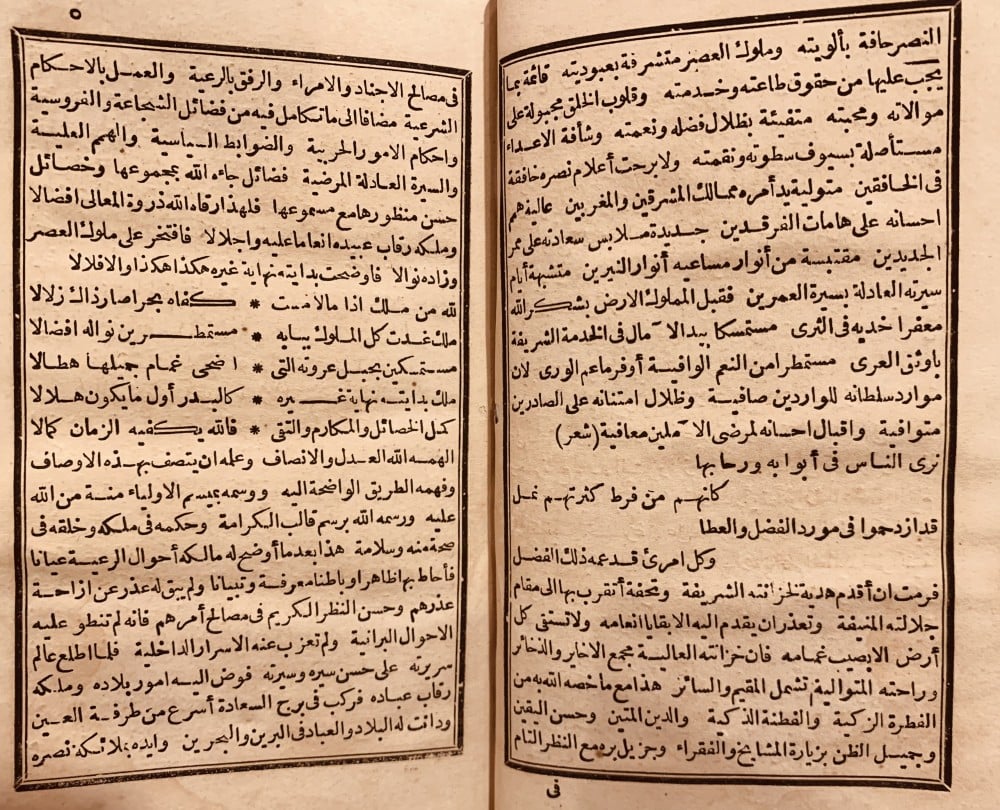 النصر حافة بألويته وملوك العصر متشرفة بعبوديته قائمة بما
يجب عليها من حقوق طاعته وخدمته وقلوب الخلق مجبولة على
موالاته ومحبته متفيئة بظلال فضله ونعمته وشأفة الاعداء
مستأصلة بسيوف سطوته ونقمته ولا برحت أعلام نصره خافقة
فى الخافقين متولية يد أمره ممالك المشرقين والمغربين عالية همم
احسانه على هامات الفرقدين جديدة ملابس سعادته على ممر
الجديدين مقتبسة من أنوار مساعيه أنوار النيرين متشبهة أيام
سيرته العادلة بسيرة العمرين فقبل المملوك الارض بشكر الله
معفرا خديه فى الثرى مستمسكا بيد الآمال فى الخدمة الشريفة
باوثق العرى مستمطرا من النعم الوافية أوفر ما عم الورى لان
موارد سلطانه للواردين صافية وظلال امتنانه على الصادرين
متوافية واقبال احسانه لمرضى الآملين معافية (شعر)
نرى الناس فى أبوابه ورحابها
كانهم من فرط كثرتهم نمل
قد ازدحموا فى مورد الفضل والعطا
وكل امرئ قد عمه ذلك الفضل
فرمت ان أقدم هدية لخزانته الشريفة وتحفة أتقرب بها الى مقام
جلالته المنيفة وتعذر ان يقدم اليه الا بقايا انعامه ولا تستقى كل
أرض الا بصيب غمامه فان خزانته العالية مجمع الاخاير والذخائر
وراحته المتوالية تشمل المقيم والسائر هذا مع ما خصه الله به من
الفطرة الزكية والفطنة الذكية والدين المتين وحسن اليقين
وجميل الظن بزيارة المشايخ والفقراء وجزيل بره مع النظر التام
فى
٥
فى مصالح الاجناد والامراء والرفق بالرعية والعمل بالاحكام
الشرعية مضافا الى ما تكامل فيه من فضائل الشجاعة والفروسية
واحكام الامور الحربية والضوابط السياسية والهمم العلية
والسيرة العادلة المرضية فضائل جاءه الله بمجموعها وخصائل
حسن منظورها مع مسموعها فلهذا رقاه الله ذروة المعالى افضالا
وملكه رقاب عبيده انعاما عليه واجلالا فافتخر على ملوك العصر
وزاده نوالا فاوضحت بدايته نهاية غيره هكذا هكذا والا فلالا
لله من ملك اذا مالامست * كفاه بحرا صار ذاك زلالا
ملك غدت كل الملوك ببابه * مستمطرين نواله افضالا
مستمسكين بحبل عروته التى * اضحى غمام جميلها هطالا
ملك بدايته نهاية غيره * كالبدر أول ما يكون هلالا
كمل الخصائل والمكارم والتقى * فالله يكفيه الزمان كمالا
الهمه الله العدل والانصاف وعلمه ان يتصف بهذه الاوصاف
وفهمه الطريق الواضحة اليه ووسمه بميسم الاولياء منة من الله
عليه ورسمه الله برسم قالب الكرامة وحكمه فى ملكه وخلقه فى
صحة منه وسلامة هذا بعد ما أوضح له مالكه أحوال الرعية عيانا
فأحاط بها ظاهرا وباطنا معرفة وتبيانا ولم يبق له عذر عن ازاحة
عذرهم وحسن النظر الكريم فى مصالح أمرهم فانه لم تنطو عليه
الاحوال البرانية ولم تعزب عنه الاسرار الداخلية فلما اطلع عالم
سريرته على حسن سيره وسيرته فوض اليه امور بلاده وملكه
رقاب عباده فركب فى برج السعادة أسرع من طرفة العين
ودانت له البلاد والعباد فى البرين والبحرين وايده بملائكة نصره